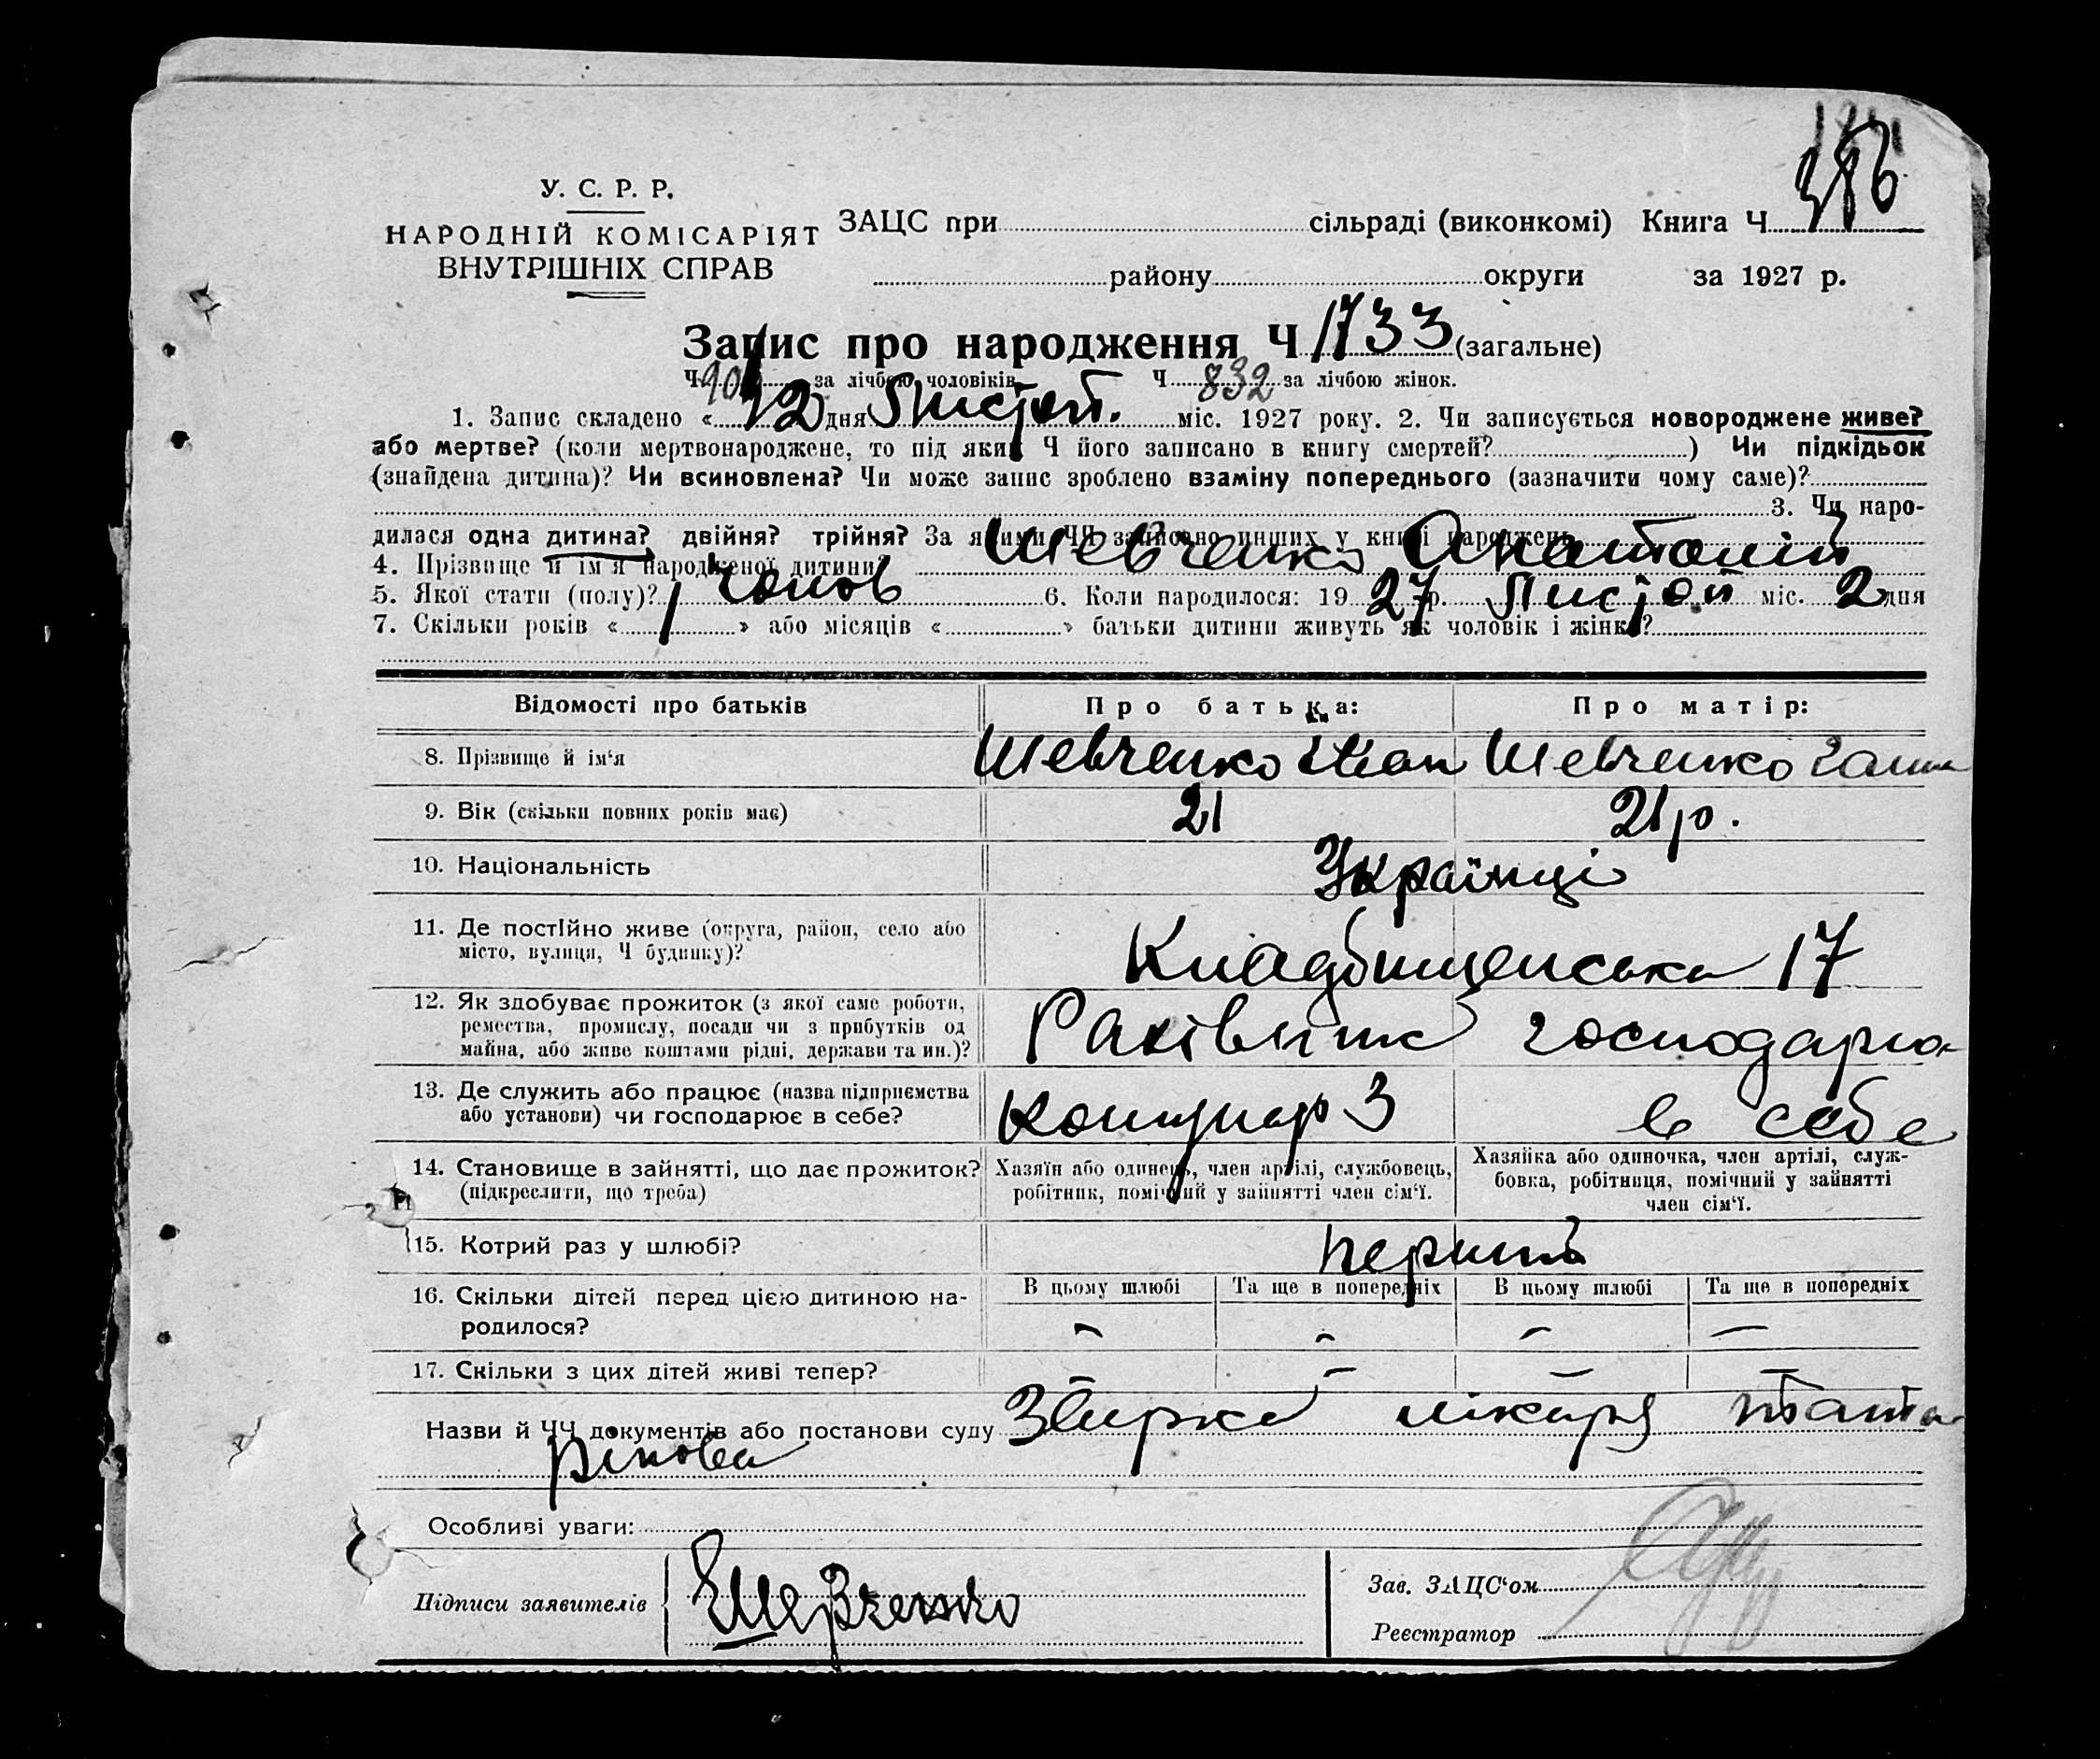 У. С. Р. Р.
НАРОДНІЙ КОМІСАРІЯТ
ВНУТРІШНІХ СПРАВ
ЗАЦС при сільраді (виконкомі) Книга Ч
району округи за 1927 р.
Запис про народження Ч 1733 (загальне)
Ч за лічбою чоловіків Ч 832 за лічбою жінок.
1. Запис складено « 12 дня Листоп. міс. 1927 року. 2. Чи записується новороджене живе?
або мертве? (коли мертвонароджене, то під яким Ч його записано в книгу смертей? ) Чи підкідьок
(знайдена дитина)? Чи всиновлена? Чи може запис зроблено взаміну попереднього (зазначити чому саме)?
3. Чи наро-
дилася одна дитина? двійня? трійня? За якими ЧЧ записано инших у книзі народжень
4. Прізвище й ім'я народженої дитини Шевченко Анатолій
5. Якої стати (полу)? чолов 6. Коли народилося: 19 27 р. Листоп міс. 2 дня
7. Скільки років « 1 » або місяців « » батьки дитини живуть як чоловік і жінка?
Відомості про батьків Про батька: Про матір:
8. Прізвище й ім'я Шевченко Шевченко Ганна
9. Вік (скільки повних років має) 21 21 р.
10. Національність Українці
11. Де постійно живе (округа, район, село або
місто, вулиця, Ч будинку)? Кладбищенська 17
12. Як здобуває прожиток (з якої саме роботи,
ремества, промислу, посади чи з прибутків од
майна, або живе коштами рідні, держави та ин.)? Рахівник господарка
13. Де служить або працює (назва підприємства
або установи) чи господарює в себе? 3 в себе
14. Становище в зайнятті, що дає прожиток?
(підкреслити, що треба)
Хазяїн або одинець, член артілі, службовець,
робітник, помічний у зайнятті член сім'ї.
Хазяйка або одиночка, член артілі, служ-
бовка, робітниця, помічний у зайнятті
член сім'ї.
15. Котрий раз у шлюбі? перший
16. Скільки дітей перед цією дитиною на-
родилося?
В цьому шлюбі Та ще в попередніх В цьому шлюбі Та ще в попередніх
17. Скільки з цих дітей живі тепер?
Назви й ЧЧ документів або постанови суду лікаря
Особливі уваги:
Підписи заявителів ЕШевченко
Зав. ЗАЦС'ом
Реєстратор